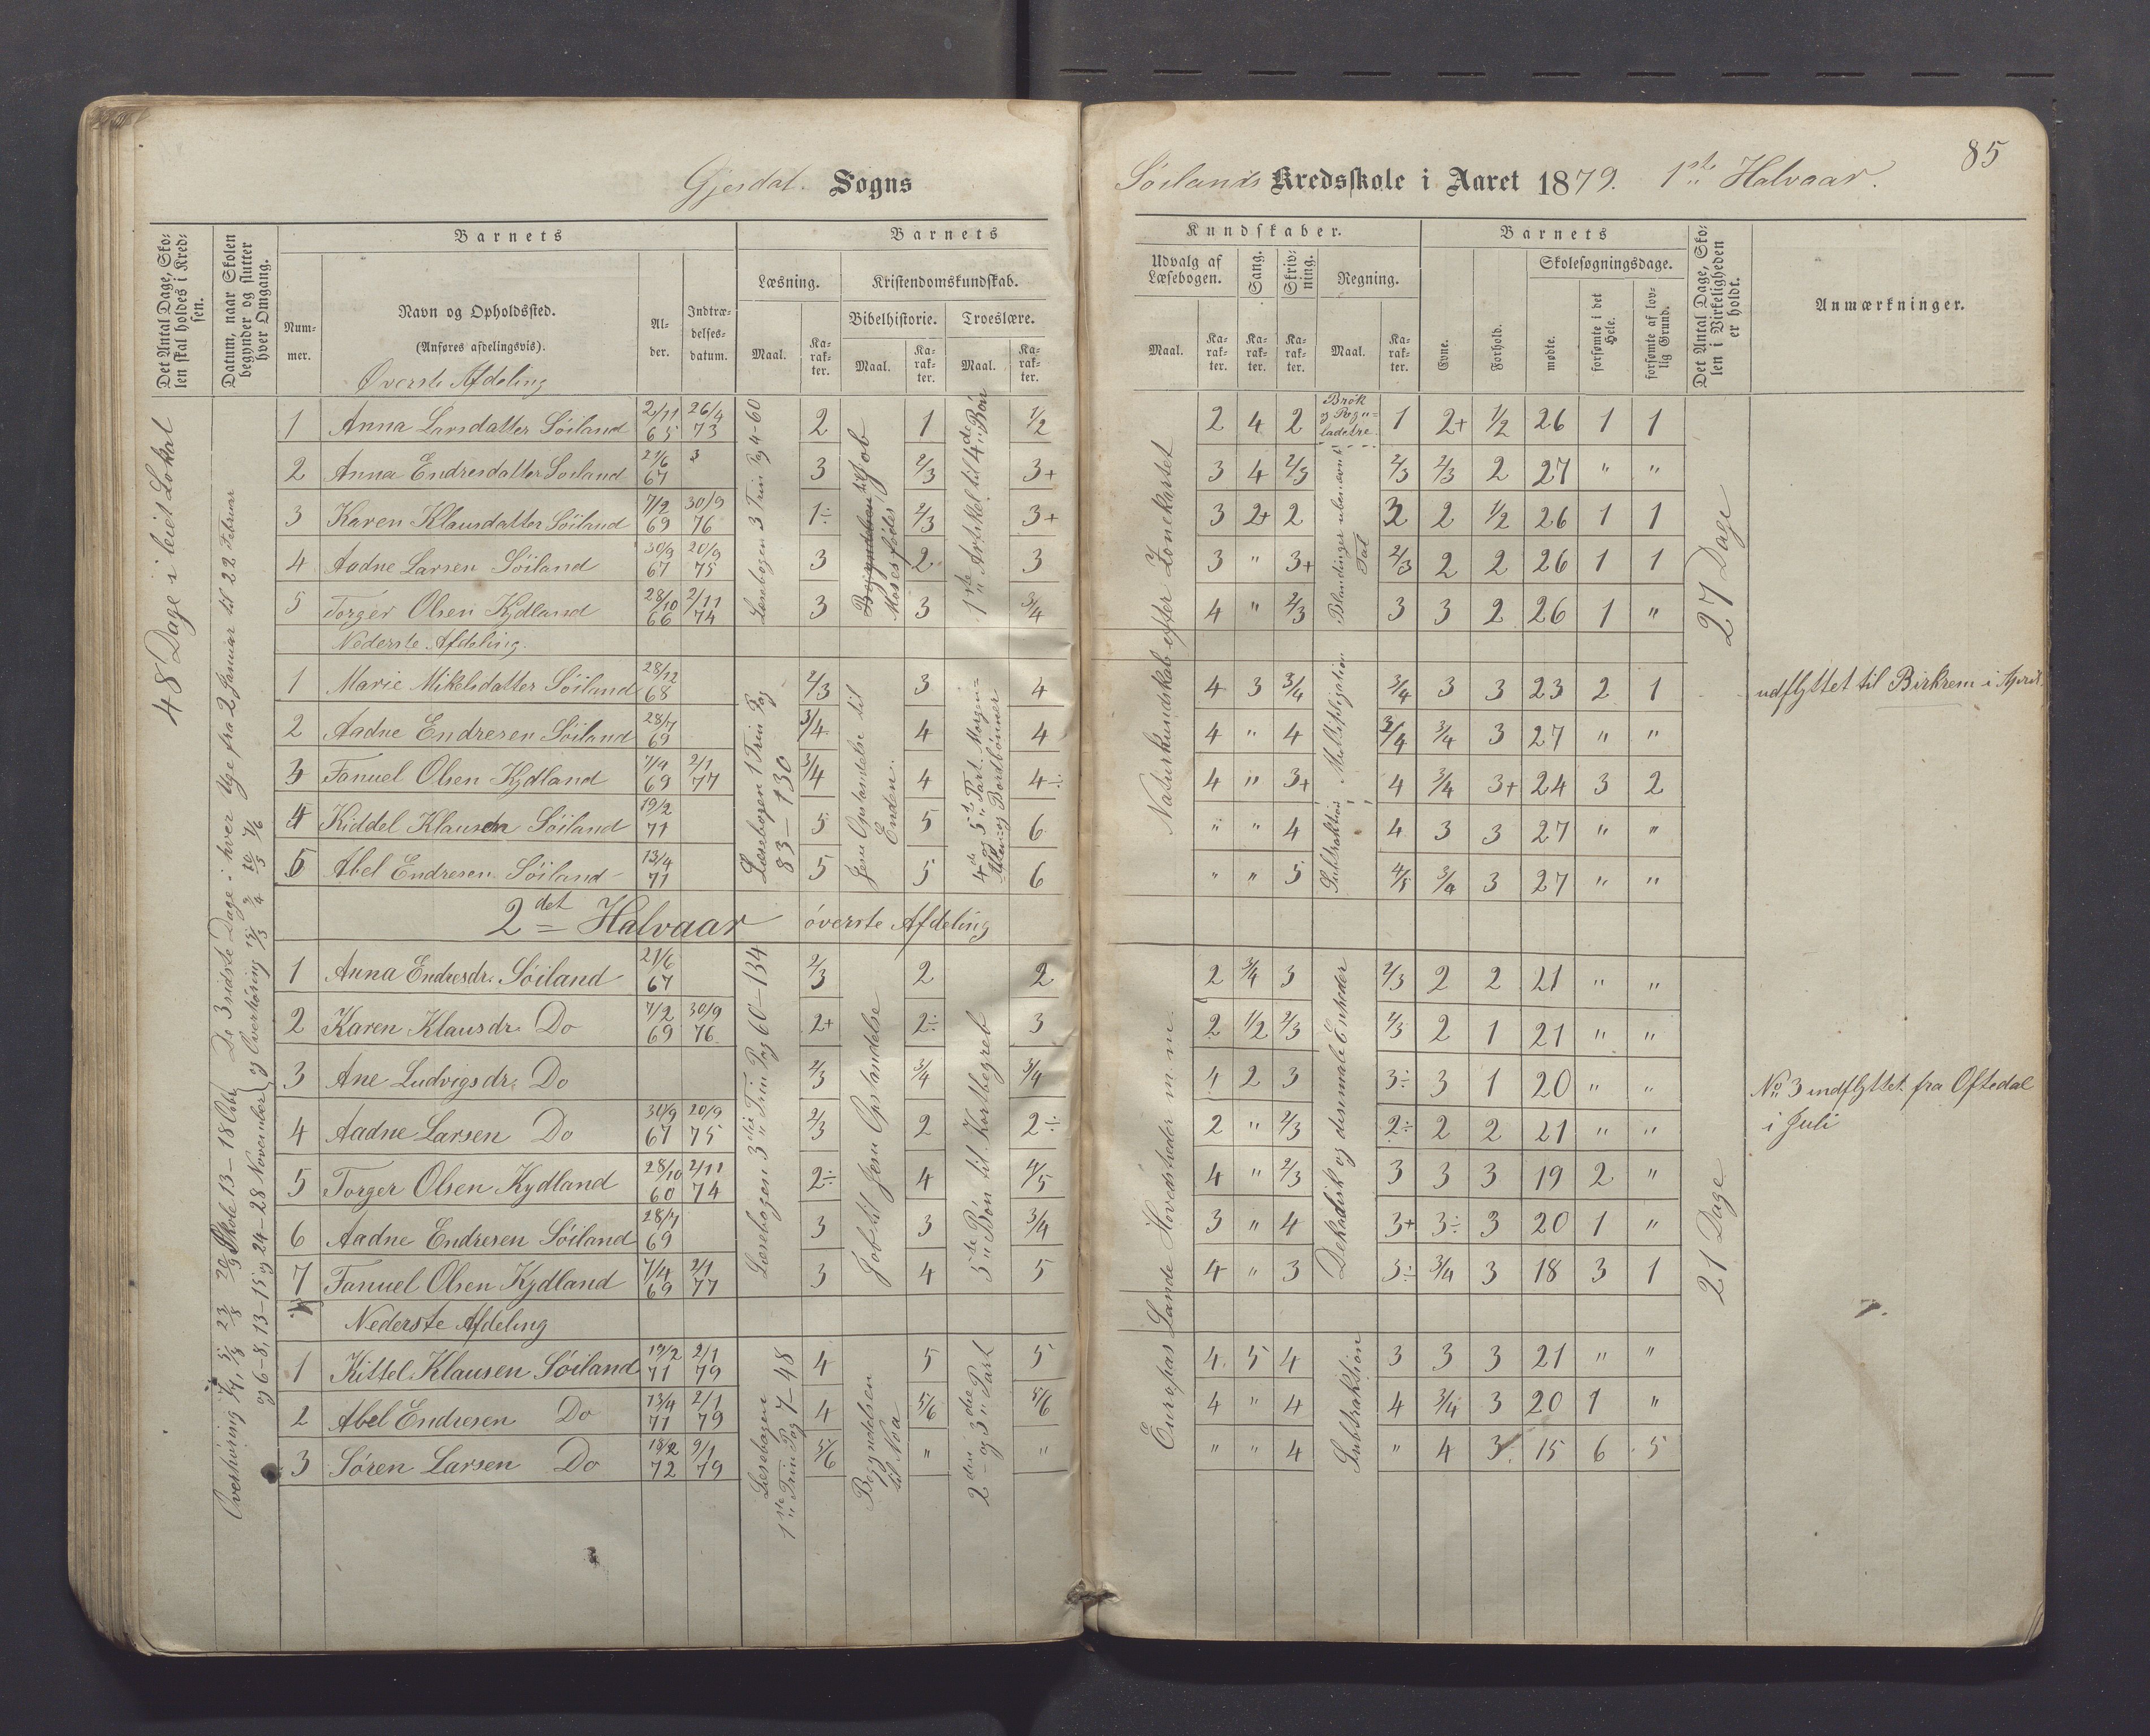 85
Gjesdal. Sogns
Søilands Kredsskole i Aaret 1879. 1ste Halvaar.
Det Antal Dage, Sko-
len skal holdes i Kred-
sen.
Datum, naar Skolen
begynder og slutter
hver Omgang.
Barnets
Num-
mer.
Navn og Opholdssted.
(Anføres afdelingsvis).
Al-
der.
Indtræ-
delses-
datum.
Barnets
Læsning.
Kristendomskundskab.
Bibelhistorie.
Troeslære.
Maal.
Ka-
rak-
ter.
Maal.
Ka-
rak-
ter.
Maal.
Ka-
rak-
ter.
Kundskaber.
Udvalg af
Læsebogen.
Sang.
Skriv-
ning.
Regning.
Maal.
Ka-
rak-
ter.
Ka-
rak-
ter.
Ka-
rak-
ter.
Maal.
Ka-
rak-
ter.
Barnets
Evne.
Forhold.
Skolesøgningsdage.
mødte.
forsømte i det
Hele.
forsømte af lov-
lig Grund.
Det Antal Dage, Sko-
len i Virkeligheden
er holdt.
Anmærkninger.
48 Dage i leiet Lokal
De 3 sidste Dage i hver Uge fra 2 Januar til 22 Februar
og Overhøring
Skole 13-18 Octbr
og 6-8, 13-15 og 24-28 November
Øverste Afdeling
Læsebogen 3 Trin Pag 4-60
Begyndelsen til Job
Moses fødes
1ste Artikel til 4de Bøn
Naturkundskab efter Zonekartet
Brøk
Blandinger ubenævnt
Tal
27 Dage
1 Anna Larsdatter Søiland 2/11 65 26/4 73 2 1 1/2 2 4 2 1 2+ 1/2 26 1 1
2 Anna Endresdatter Søiland 21/6 67 3 2/3 3+ 3 4 2/3 2/3 2/3 2 27 " "
3 Karen Klausdatter Søiland 7/2 69 30/9 76 1÷ 2/3 3+ 3 2+ 2 2 2 1/2 26 1 1
4 Aadne Larsen Søiland 30/9 67 20/9 75 3 2 3 3 " 3+ 2/3 2 2 26 1 1
5 Torger Olsen Kydland 28/10 66 2/11 74 3 3 3/4 4 " 2/3 3 3 2 26 1 "
Nederste Afdeling.
Læsebogen 1 Trin Pag
83-130
Jesu Opstandelse til
Enden.
4de og 5te Part. Morgen-
Aften og Bordbønner
Multipligation
Subtraktion
1 Marie Mikelsdatter Søiland 28/12 68 2/3 3 4 4 3 3/4 3/4 3 3 23 2 1 udflyttet til Birkrem i April
2 Aadne Endresen Søiland 28/7 69 3/4 4 4 4 " 4 3/4 3/4 3 27 " "
3 Fanuel Olsen Kydland 7/4 69 2/1 77 3/4 4 4÷ 4 " 3+ 4 3/4 3+ 24 3 2
4 Kiddel Klausen Søiland 19/2 71 5 5 6 " " 4 4 3 3 27 " "
5 Abel Endresen Søiland 13/4 71 5 5 6 " " 5 4/5 3/4 3 27 " "
2det Halvaar øverste Afdeling
Læsebogen 3die Trin Pag 60-134
Job til Jesu Opstandelse
5te Bøn til Kortbegreb
Europas Lande Hovedstæder m m
Dekadisk og desimale Enheder
21 Dage
1 Anna Endresdr. Søiland 21/6 67 2/3 2 2 2 3/4 3 2/3 2 2 21 " "
2 Karen Klausdr. Do 7/2 69 30/9 76 2+ 2÷ 3 2 1/2 2/3 2/3 2 1 21 " "
3 Ane Ludvigsdr. Do 2/3 3/4 3/4 4 2 3 3÷ 3 1 20 " " No 3 indflyttet fra Oftedal
i Juli
4 Aadne Larsen Do 30/9 67 20/9 75 2/3 2 2÷ 2 " 2/3 2÷ 2 2 21 " "
5 Torger Olsen Kydland 28/10 60 2/11 74 2÷ 4 4/5 4 " 2/3 3 3 3 19 2 "
6 Aadne Endresen Søiland 28/7 69 3 3 3/4 3 " 4 3+ 3÷ 3 20 1 "
7 Fanuel Olsen Kydland 7/4 69 2/1 77 3 4 5 4 " 3 3÷ 3/4 3 18 3 1
Nederste Afdeling
Læsebogen
1ste Trin Pag 7-48
Begyndelsen
til Noa
2den og 3die Part
Subtraktion
1 Kittel Klausen Søiland 19/2 71 2/1 79 4 5 5 4 5 4 3 3 3 21 " "
2 Abel Endresen Do 13/4 71 2/1 79 4 5/6 5/6 4 " 4 4 3/4 3 20 1 "
3 Søren Larsen Do 18/2 72 9/1 79 5/6 " " " " 4 " 4 3 15 6 5